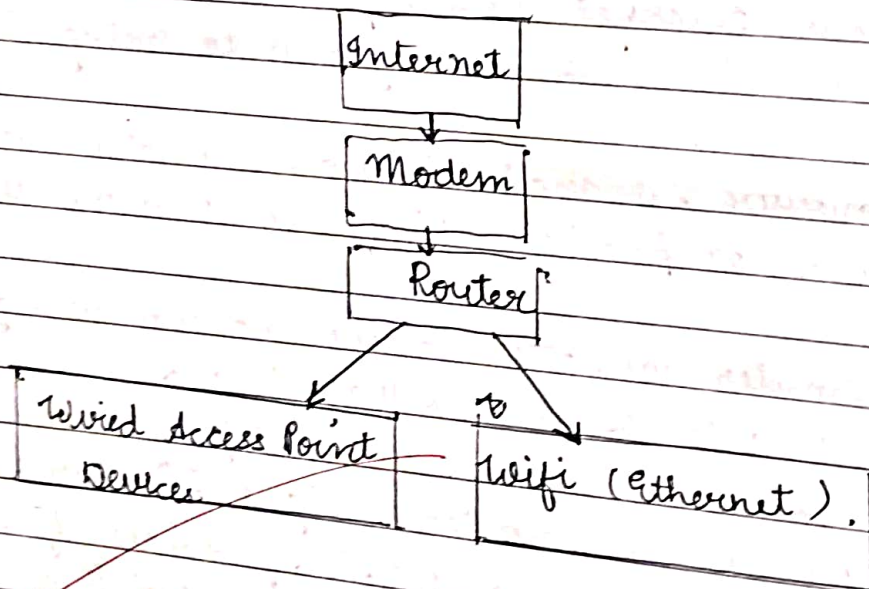 Internet
Modem
Router
Wired Access Point
Devices
Wifi (Ethernet).